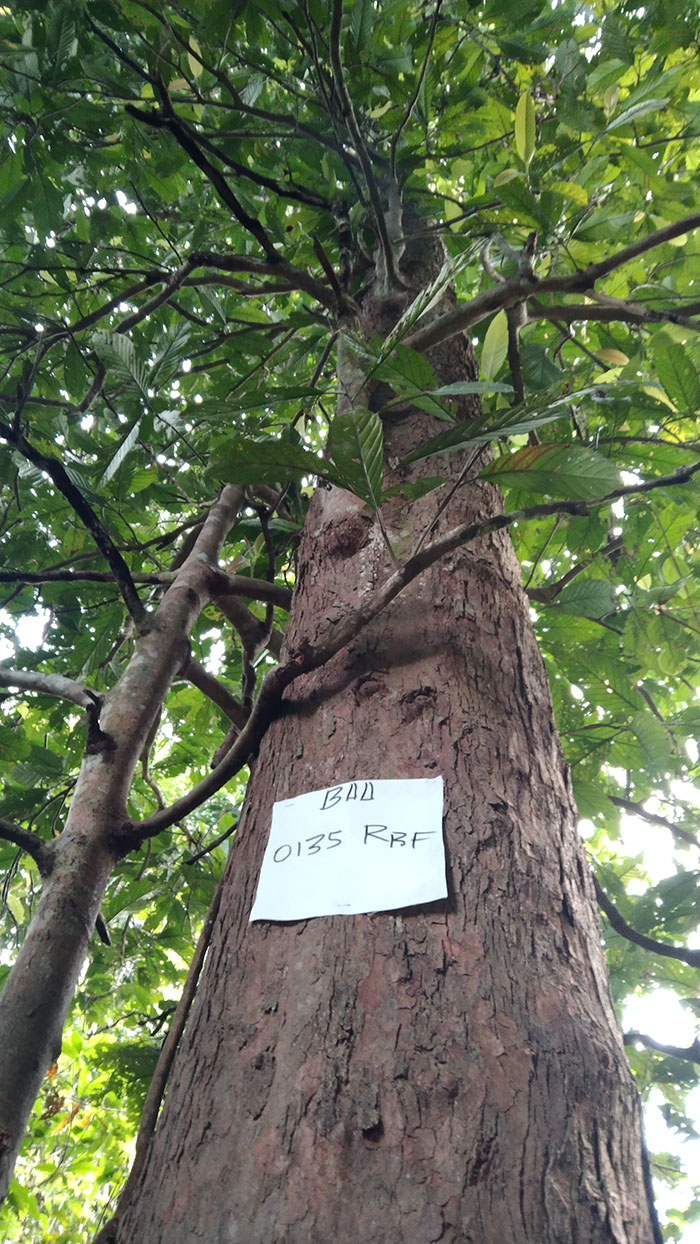 BAA
0135 RBF